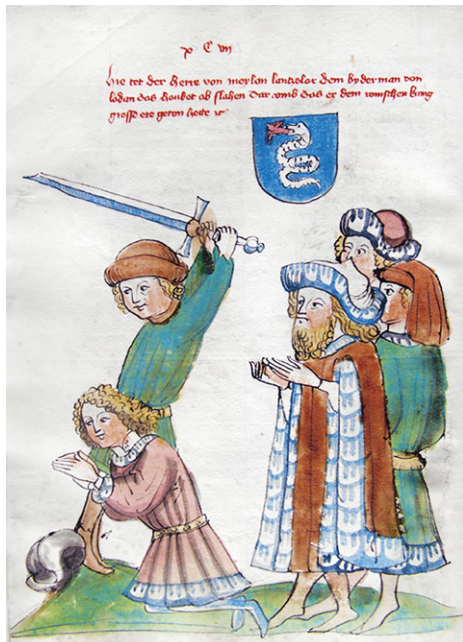 hie tet der herre von meylon lantwlor dem byderman von
lodan das houbet ab slahen dar vmb das er dem romschen kung
grosse ere geton hette